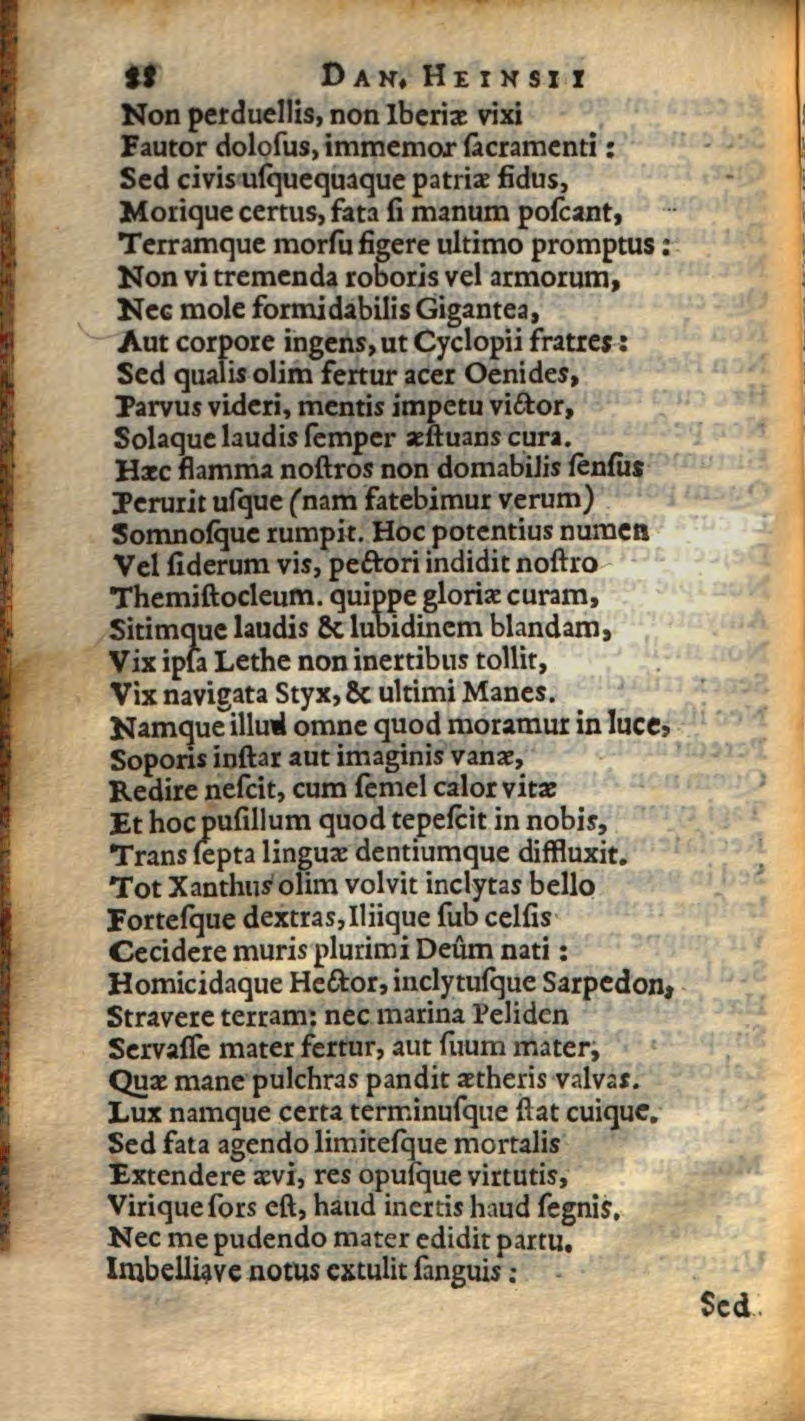 88 DAN. HEINSII
Non perduellis, non Iberiæ vixi
Fautor doloſus, immemor ſacramenti :
Sed civis uſquequaque patriæ fidus,
Morique certus, fata ſi manum poſcant,
Terramque morſu figere ultimo promptus :
Non vi tremenda roboris vel armorum,
Nec mole formidabilis Gigantea,
Aut corpore ingens, ut Cyclopii fratres :
Sed qualis olim fertur acer Oenides,
Parvus videri, mentis impetu victor,
Solaque laudis ſemper æſtuans cura.
Hæc flamma noſtros non domabilis ſenſus
Perurit uſque (nam fatebimur verum)
Somnoſque rumpit. Hoc potentius numen
Vel ſiderum vis, pectori indidit noſtro
Themiſtocleum. quippe gloriæ curam,
Sitimque laudis & lubidinem blandam,
Vix ipſa Lethe non inertibus tollit,
Vix navigata Styx, & ultimi Manes.
Namque illud omne quod moramur in luce,
Soporis inſtar aut imaginis vanæ,
Redire neſcit, cum ſemel calor vitæ
Et hoc puſillum quod tepeſcit in nobis,
Trans ſepta linguæ dentiumque diffluxit.
Tot Xanthus olim volvit inclytas bello
Forteſque dextras, Iliique ſub celſis
Cecidere muris plurimi Deûm nati :
Homicidaque Hector, inclytuſque Sarpedon,
Stravere terram: nec marina Peliden
Servaſſe mater fertur, aut ſuum mater,
Quæ mane pulchras pandit ætheris valvas.
Lux namque certa terminuſque ſtat cuique.
Sed fata agendo limiteſque mortalis
Extendere ævi, res opuſque virtutis,
Virique ſors eſt, haud inertis haud ſegnis.
Nec me pudendo mater edidit partu.
Imbelliave notus extulit ſanguis :
Sed